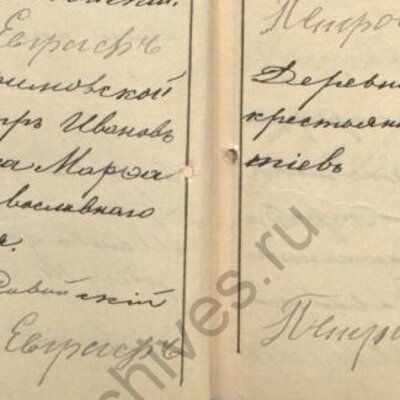 Евграфъ
имовской
тръ Ивановъ
на Марѳа
вославнаго
Евграфъ
Петро
Деревн
крестьян
тіевъ
Петро
chives.ru